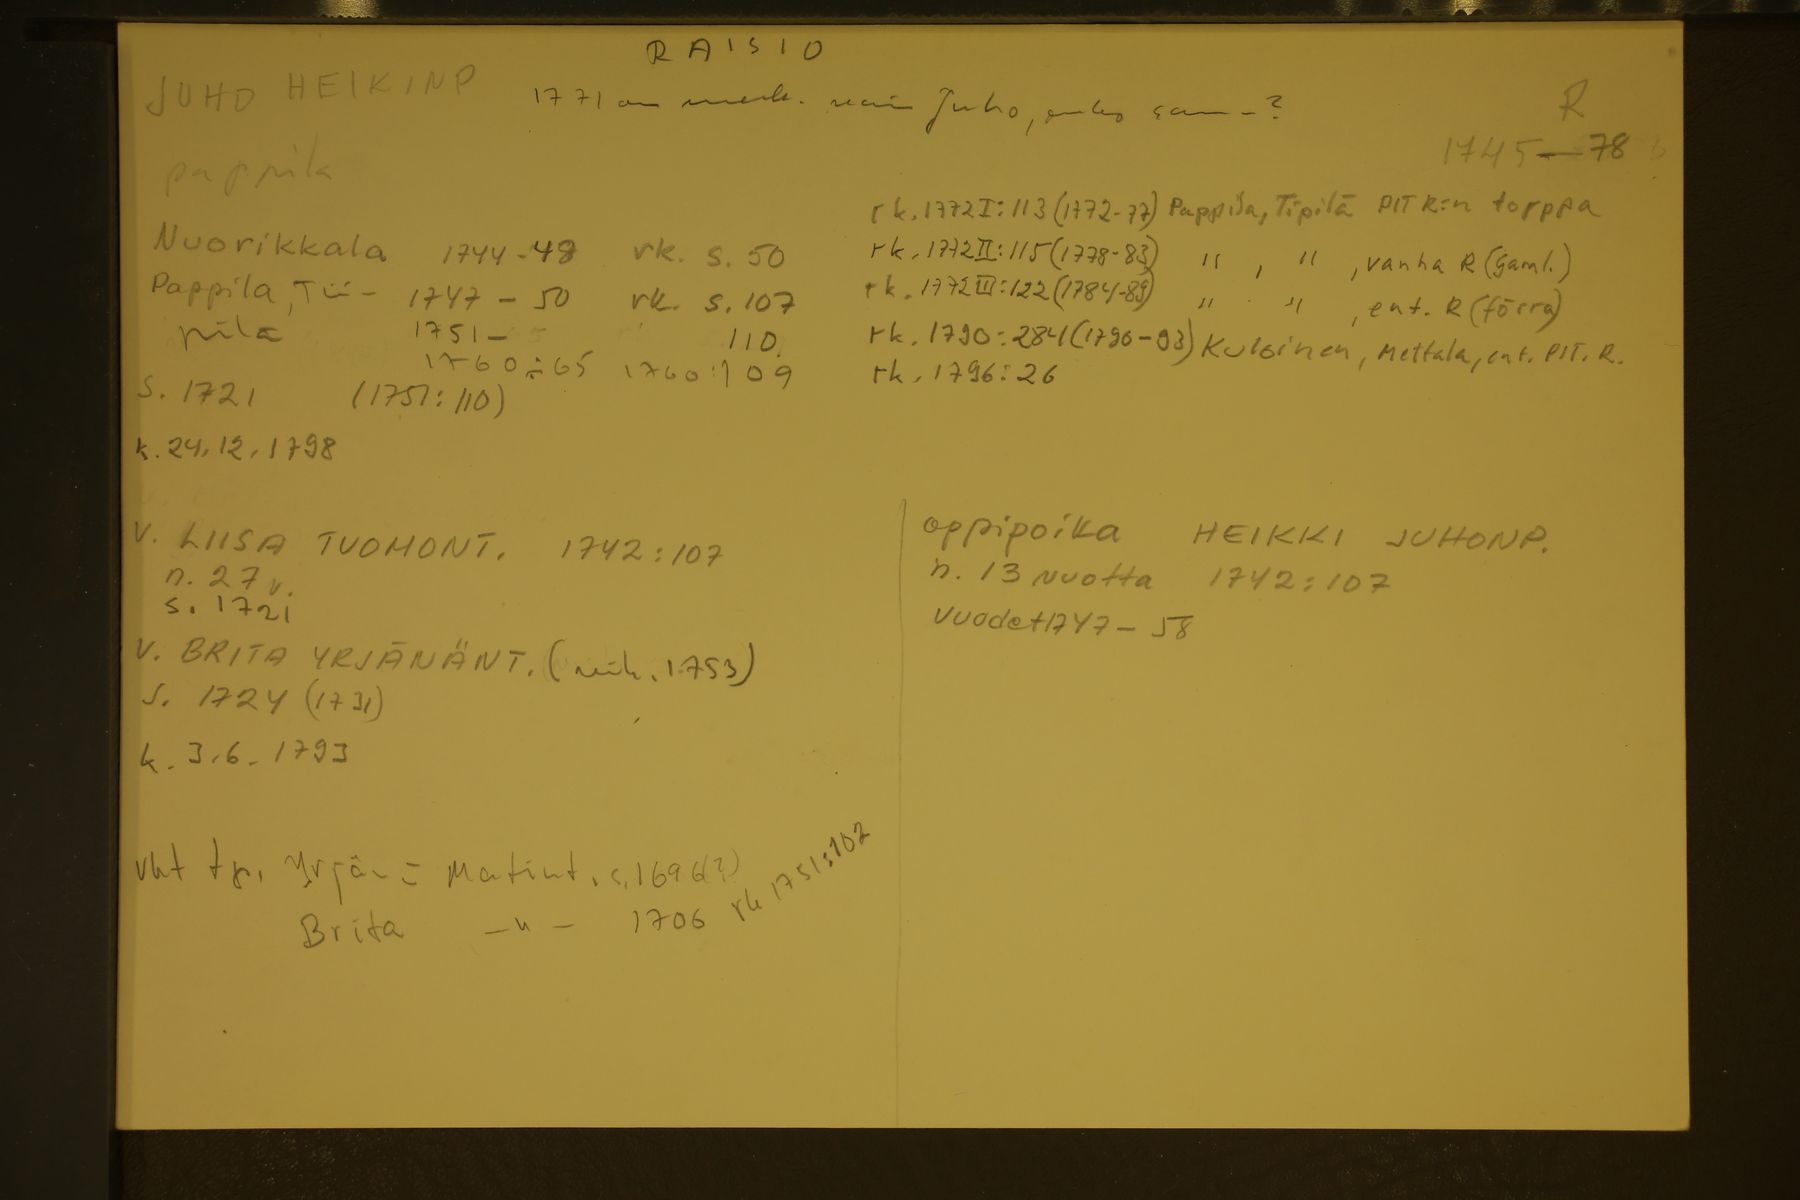 RAISIO
JUHO HEIKINP
1771 on merk. vain Juho, onko sama?
R
1745—78
pappila
Nuorikkala 1744-48 rk. s. 50
Pappila, Tii- 1747-50 rk. s. 107
pilä 1751- 110
1760:65 1760:109
s. 1721 (1751:110)
k. 24.12.1798
rk. 1772 I:113 (1772-77) Pappila, Tipilä PIT R:n torppa
rk. 1772 II:115 (1778-83) " , " , vanha R (gaml.)
rk. 1772 III:122 (1784-89) " " , ent. R (förra)
rk. 1790:284 (1790-93) Kuloinen, Mettala, ent. PIT. R.
rk. 1796:26
V. LIISA TUOMONT. 1742:107
n. 27 v.
s. 1721
V. BRITA YRJÄNÄNT. (vih. 1753)
s. 1724 (1731)
k. 3.6.1793
oppipoika HEIKKI JUHONP.
n. 13 vuotta 1742:107
vuodet 1747-58
vht tp. Yrjän= Matint. s. 1696(?)
Brita -"- 1706 rk 1751:102